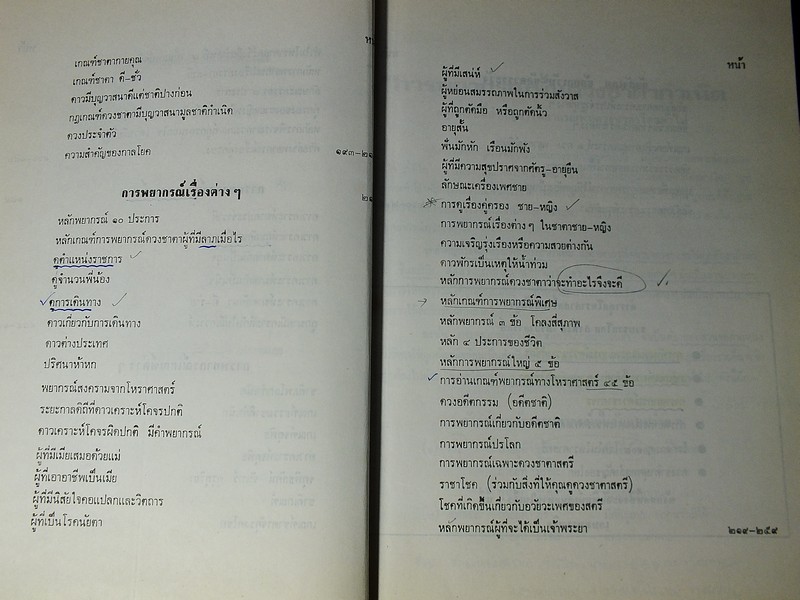 เกณฑ์ชาตากายคุณ
เกณฑ์ชาตา ดี-ชั่ว
ดาวมีบุญวาสนาดีแต่ชาติปางก่อน
กฎเกณฑ์ดวงชาตามีบุญวาสนามูลชาติกำเนิด
ดวงประจำตัว
ความสำคัญของกาลโยค
๑๙๓-๒๑
การพยากรณ์เรื่องต่าง ๆ
หลักพยากรณ์ ๑๐ ประการ
หลักเกณฑ์การพยากรณ์ดวงชาตาผู้ที่มีลาภเมื่อไร
ดูตำแหน่งราชการ
ดูจำนวนพี่น้อง
ดูการเดินทาง
ดาวเกี่ยวกับการเดินทาง
ดาวต่างประเทศ
ปริศนาห้าหก
พยากรณ์สงครามจากโหราศาสตร์
ระยะกาลดิถีที่ดาวเคราะห์โคจรปกติ
ดาวเคราะห์โคจรผิดปกติ มีคำพยากรณ์
ผู้ที่มีเมียเสมอด้วยแม่
ผู้ที่เอาอาชีพเป็นเมีย
ผู้ที่มีนิสัยใจคอแปลกและวิตถาร
ผู้ที่เป็นโรคนัยตา
หน้า
ผู้ที่มีเสน่ห์
ผู้หย่อนสมรรถภาพในการร่วมสังวาส
ผู้ที่ถูกตัดมือ หรือถูกตัดนิ้ว
อายุสั้น
ฟันมักหัก เรือนมักพัง
ผู้ที่มีความสุขปราศจากศัตรู-อายุยืน
ลักษณะเครื่องเพศชาย
การดูเรื่องคู่ครอง ชาย-หญิง
การพยากรณ์เรื่องต่าง ๆ ในชาตาชาย-หญิง
ความเจริญรุ่งเรืองหรือความสวยต่างกัน
ดาวพักรเป็นเหตุให้น้ำท่วม
หลักการพยากรณ์ดวงชาตาว่าจะทำอะไรจึงจะดี
หลักเกณฑ์การพยากรณ์พิเศษ
หลักพยากรณ์ ๓ ข้อ โคลงสี่สุภาพ
หลัก ๔ ประการของชีวิต
หลักการพยากรณ์ใหญ่ ๕ ข้อ
การอ่านเกณฑ์พยากรณ์ทางโหราศาสตร์ ๔๕ ข้อ
ดวงอดีตกรรม (อดีตชาติ)
การพยากรณ์เกี่ยวกับอดีตชาติ
การพยากรณ์ปรโลก
การพยากรณ์เฉพาะดวงชาตาสตรี
ราชาโชค (ร่วมกับสิ่งที่ให้คุณดูดวงชาตาสตรี)
โชคที่เกิดขึ้นเกี่ยวกับอวัยวะเพศของสตรี
หลักพยากรณ์ผู้ที่จะได้เป็นเจ้าพระยา
๒๑๙-๒๕๙